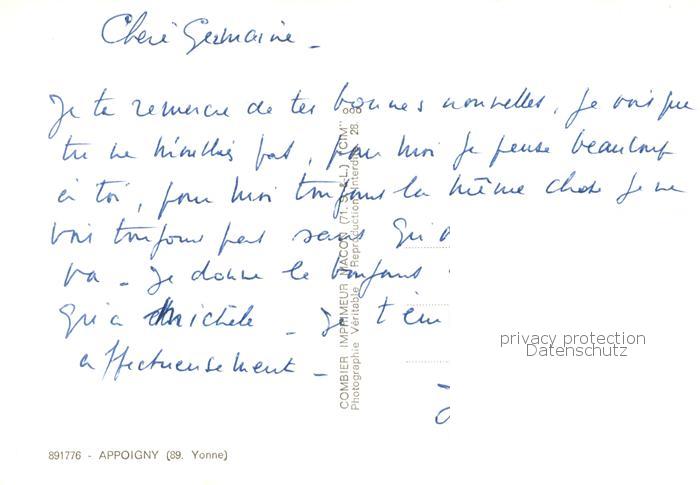 Chere Germaine -
Je te remercie de tes bonnes nouvelles, je vois que
tu ne m'oublies pas, pour moi je pense beaucoup
à toi, pour moi toujours la même chose je ne
vois toujours pas sans Qui
va - Je donne le bonjour
Qu'a Michèle - Je t'em
affectueusement -
COMBIER IMPRIMEUR MACON (71. S.-&-L.) "CIM"
Photographie Véritable - Reproduction Interdite 28
privacy protection
Datenschutz
891776 - APPOIGNY (89. Yonne)